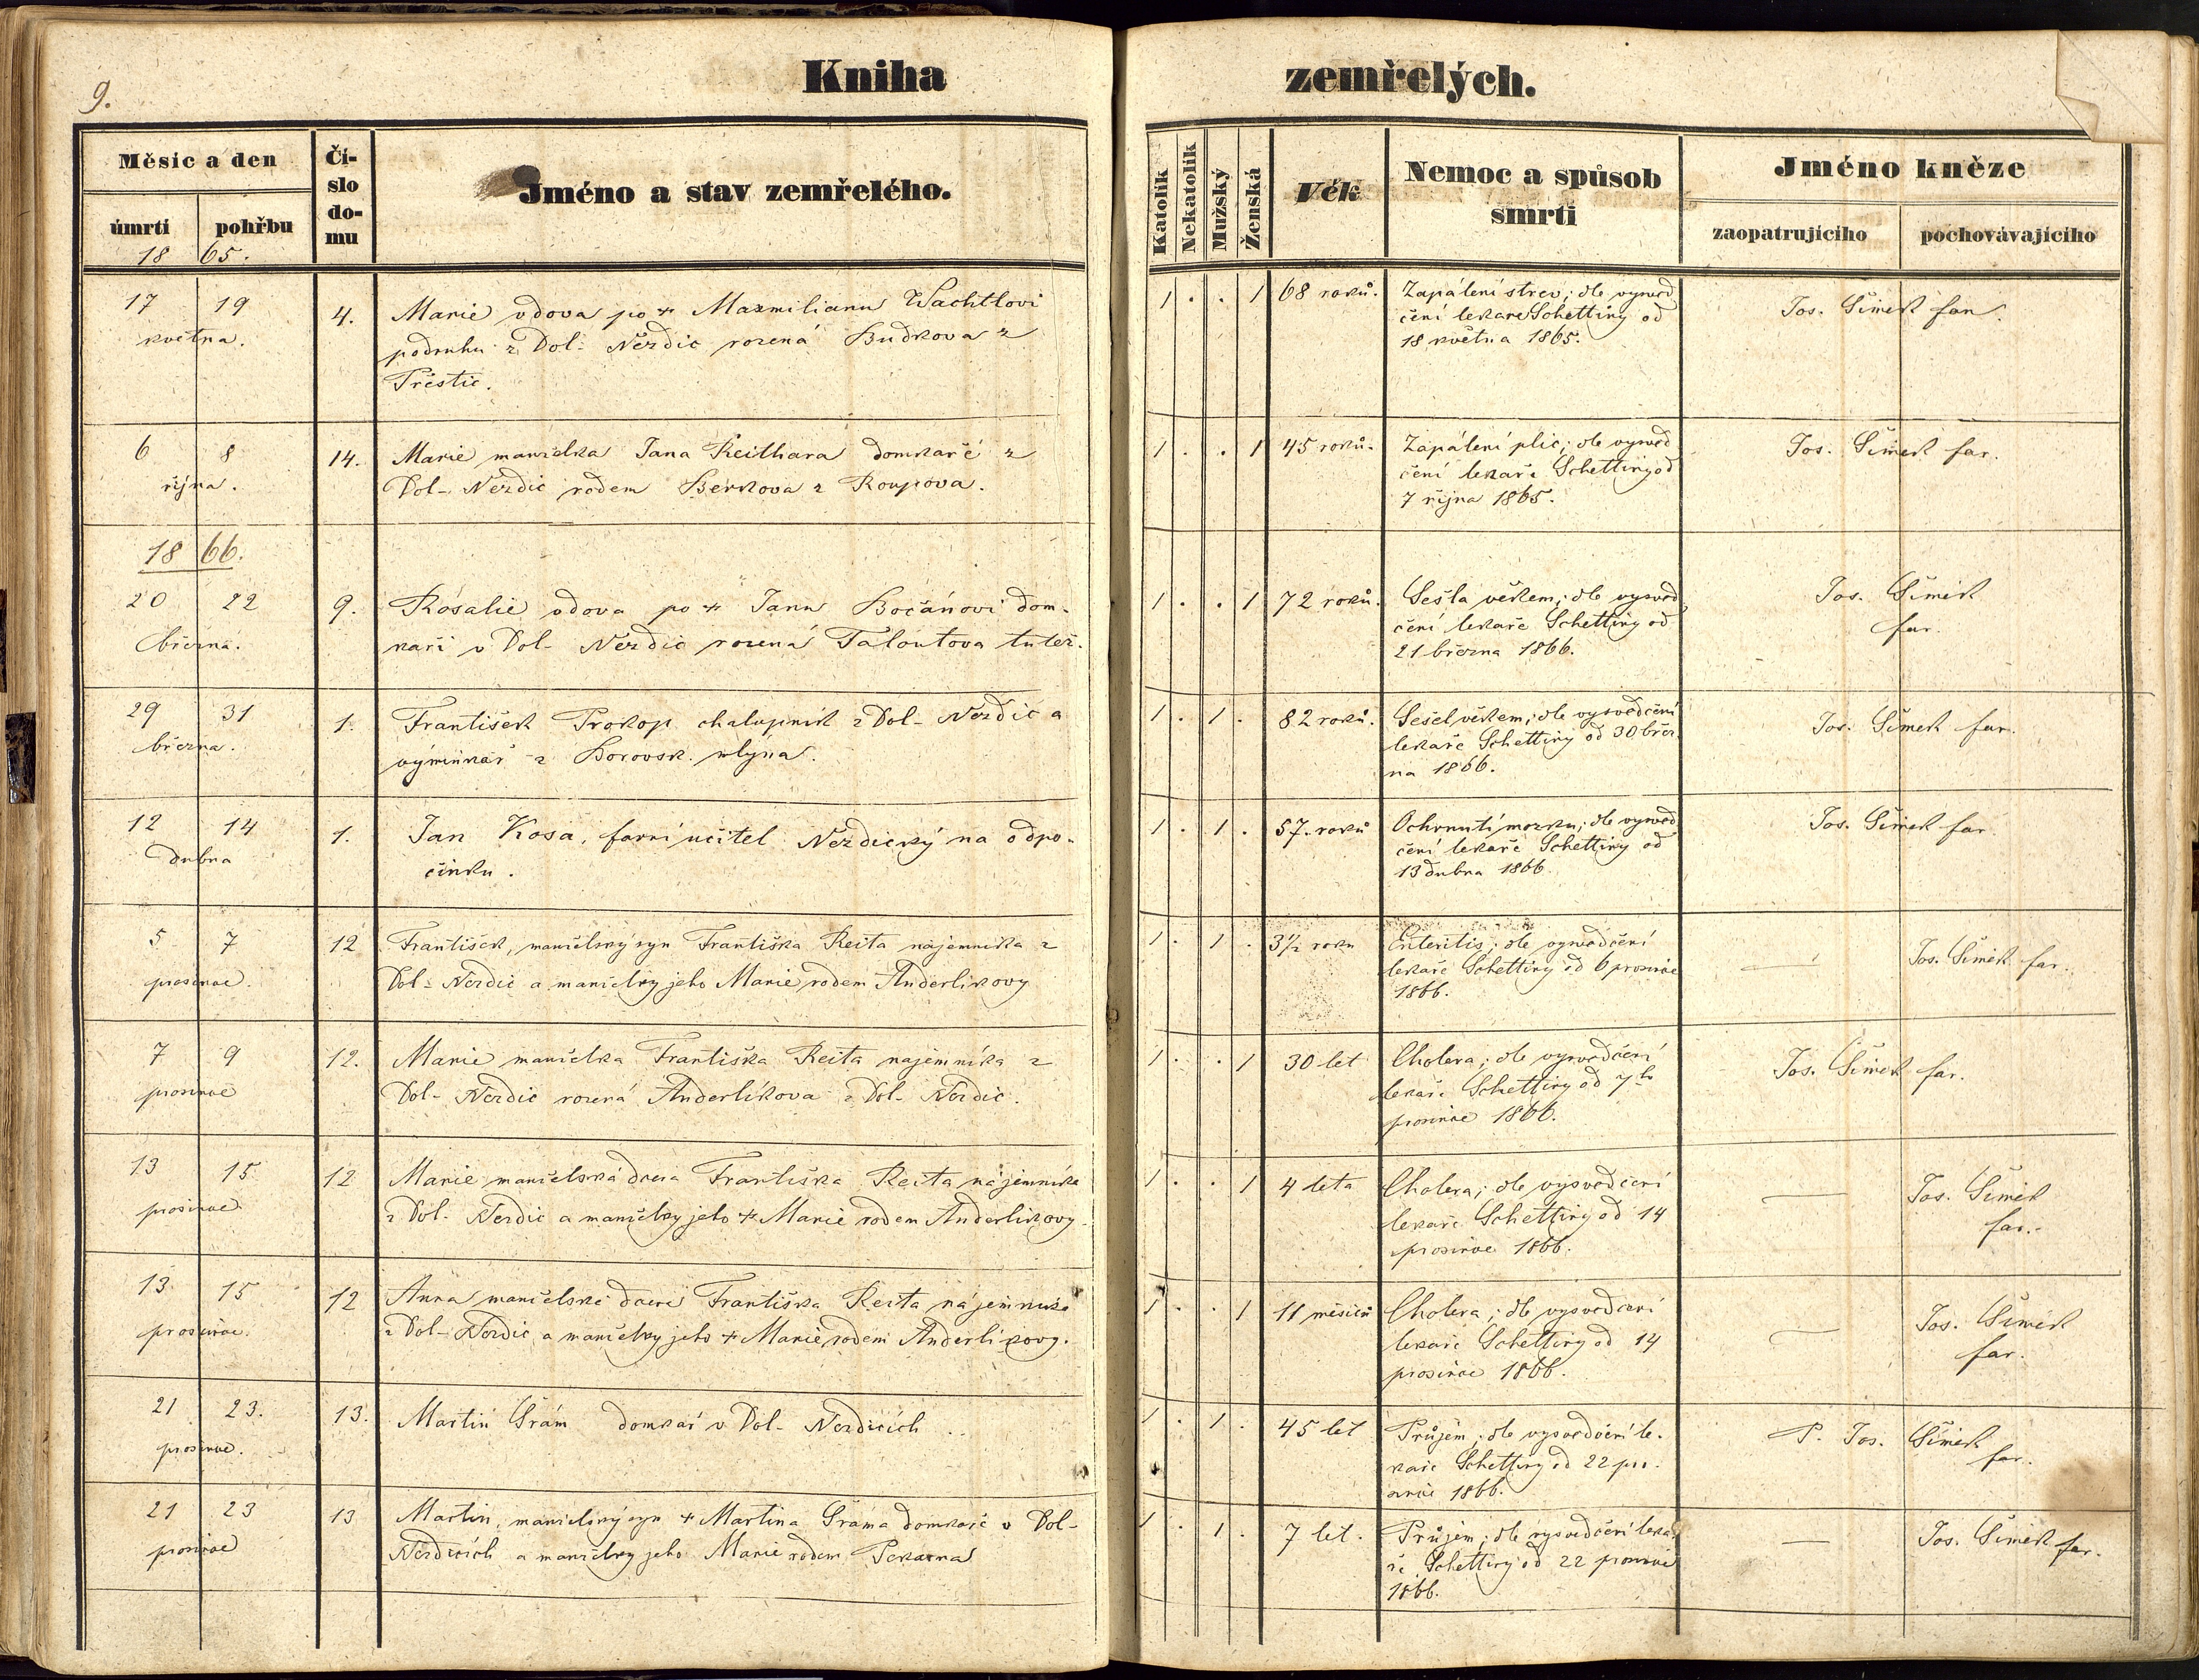 9.
Kniha zemřelých.
Měsic a den
úmrti
pohřbu
18 65.
Čí-
slo
do-
mu
Jméno a stav zemřelého.
Katolík
Nekatolík
Mužský
Ženská
Věk
Nemoc a spůsob
smrti
Jméno kněze
zaopatrujíciho
pochovávajíciho
17 19
května.
4.
Marie vdova po + Maxmilianu Wachtlovi
podruhu z Dol- Nezdic rozená Budkova z
Přestic.
1 . . 1
68 roků.
Zapálení střev; dle vysvěd
čení lekaře Schettiny od
18 května 1865.
Jos. Šimek far.
6 8
října.
14.
Marie manželka Jana Reithara domkaře z
Dol- Nezdic rodem Berkova z Roupova.
1 . . 1
45 roků.
Zapálení plic; dle vysvěd
čení lekaře Schettiny od
7 října 1865.
Jos. Šimek far.
18 66.
20 22
března.
9.
Rosalie vdova po + Janu Bočánovi dom-
kaři v Dol- Nezdic rozená Taloutova tutéž.
1 . . 1
72 roků.
Sešla věkem; dle vysvěd
čení lekaře Schettiny od
21 března 1866.
Jos. Šimek
far.
29 31
března.
1.
František Prokop chalupník z Dol- Nezdic a
výminkář z Borovsk. mlýna.
1 . 1 .
82 roků.
Sešel věkem; dle vysvědčení
lekaře Schettiny od 30 břez
na 1866.
Jos. Šimek far.
12 14
dubna
1.
Jan Kosa, farní učitel Nezdický na odpo-
činku.
1 . 1 .
57. roků
Ochrnutí mozku; dle vysvěd
čení lekaře Schettiny od
13 dubna 1866
Jos. Šimek far.
5 7
prosince.
12
František, manželský syn Františka Reita nájemníka z
Dol- Nezdic a manželky jeho Marie rodem Anderlikovy
1 . 1 .
3½ roku
Enteritis; dle vysvědčení
lekaře Schettiny od 6 prosince
1866.
—
Jos. Šimek far.
7 9
prosince
12.
Marie manželka Františka Reita najemníka z
Dol- Nezdic rozená Anderlíkova z Dol- Nezdic.
1 . . 1
30 let
Cholera; dle vysvědčení
lekaře Schettiny od 7ho
prosince 1866.
Jos. Šimek far.
13 15
prosince
12
Marie manželská dcera Františka Reita nájemníka
z Dol- Nezdic a manželky jeho + Marie rodem Anderlikovy.
1 . . 1
4 leta
Cholera; dle vysvědčení
lekaře Schettiny od 14
prosince 1866.
—
Jos. Šimek
far.
13 15
prosince.
12
Anna manželská dcera Františka Reita nájemníka
z Dol- Nezdic a manželky jeho + Marie rodem Anderlikovy.
1 . . 1
11 měsíců
Cholera; dle vysvědčení
lekaře Schettiny od 14
prosince 1866.
—
Jos. Šimek
far.
21 23.
prosince.
13.
Martin Grám domkař v Dol- Nezdicích
1 . 1 .
45 let
Průjem; dle vysvědčení le-
kaře Schettiny od 22 pro-
since 1866.
P. Jos. Šimek
far.
21 23
prosince
13
Martin, manželský syn + Martina Gráma domkaře v Dol-
Nezdicích a manželky jeho Marie rodem Pekarna
1 . 1 .
7 let.
Průjem; dle vysvědčení leka
ře Schettiny od 22 prosince
1866.
—
Jos. Šimek far.